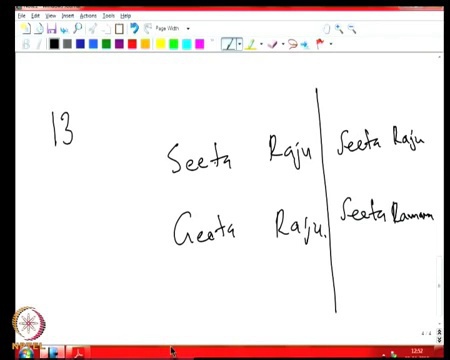 File Edit View Insert Actions Tools Help
Page Width
13
Seeta Raju Seeta Raju
Geeta Raju. Seeta Ramana
NPTEL
12:52